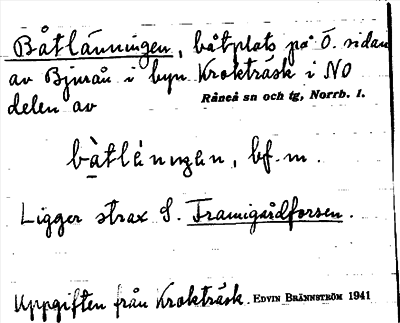 Båtlänningen, båtplats på Ö. sidan
av Bjurån i byn Krokträsk i NO
delen av Råneå sn och tg, Norrb. l.
bàtlánnŋan, bf. m.
Ligger strax S. Framigårdforsen.
Uppgiften från Krokträsk. EDVIN BRÄNNSTRÖM 1941